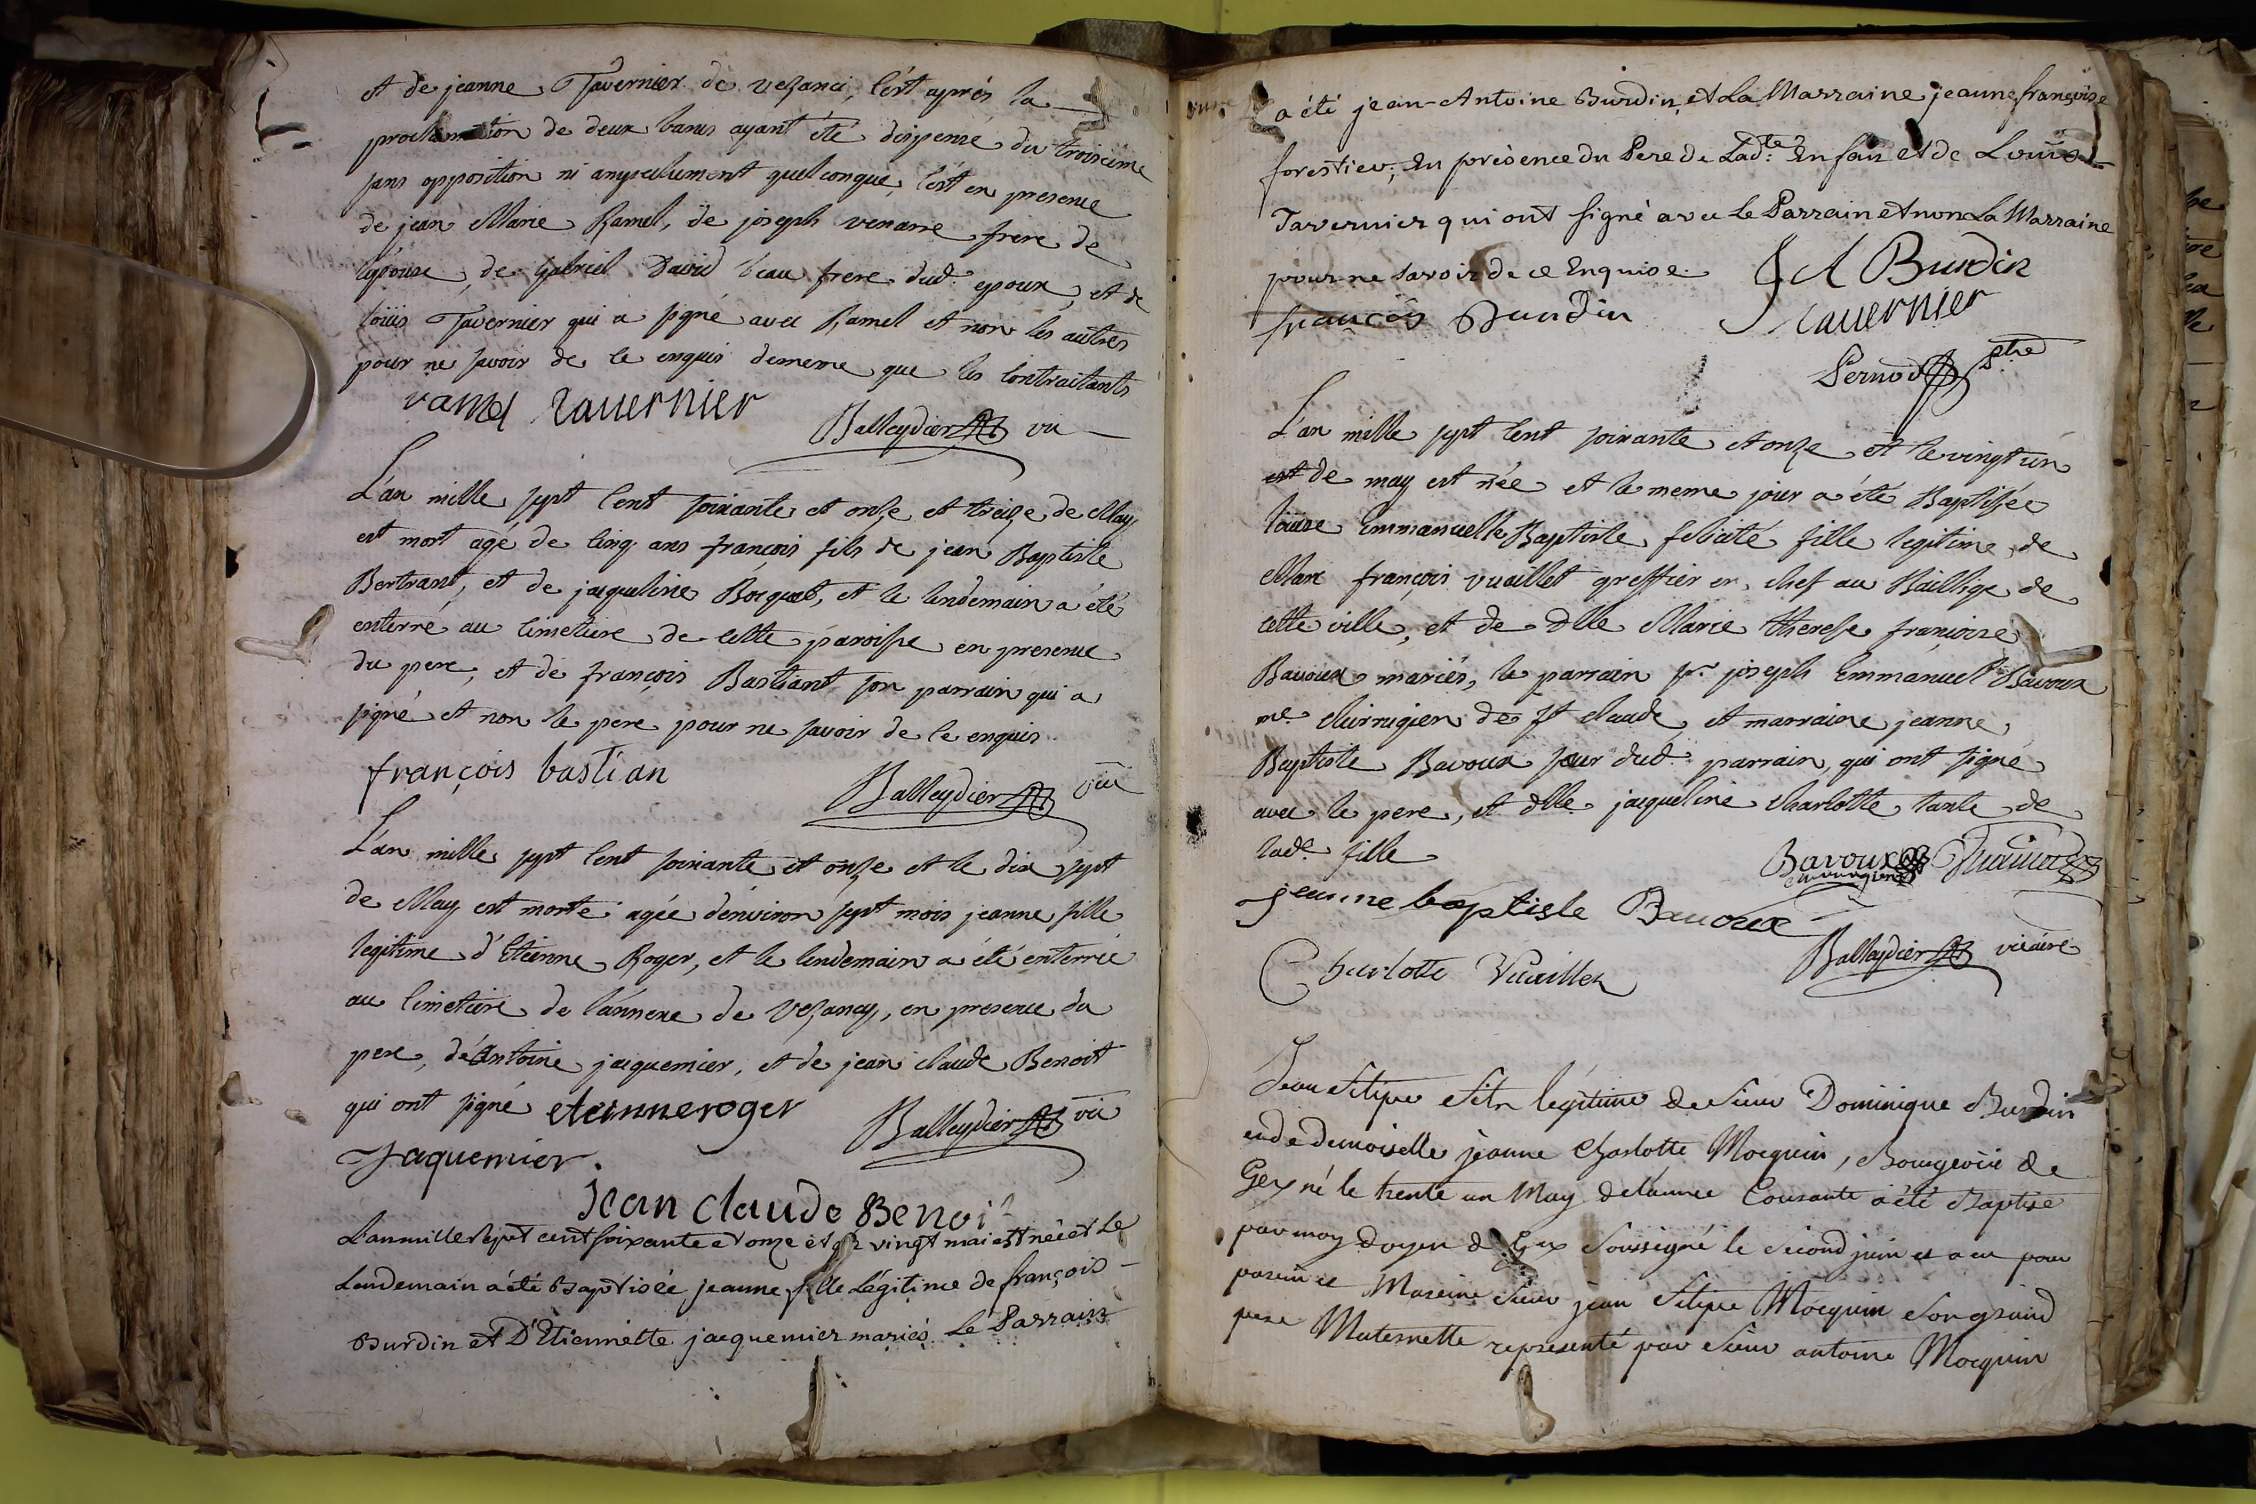 et de jeanne Tavernier de vezanci, c'est après la
proclamation de deux bans ayant été dispensé du troisieme
sans opposition ni empechement quelconque, c'est en presence
de jean Marie Ramel, de joseph venarre frere de
l'epouse, de Gabriel David beau frere dud. epoux, et de
loüis Tavernier qui a signé avec Ramel et non les autres
pour ne savoir de ce enquis demême que les contraitants
ramel tauernier
Balleydier vic
L'an mille sept cent soixante et onze et treize de May
est mort agé de cinq ans françois fils de jean Baptiste
Bertrant, et de jacqueline Bocquet, et le lendemain a été
enterré au cimetiere de cette paroisse en presence
du pere, et de françois Bastiant son parrain qui a
signé et non le pere pour ne savoir de ce enquis
françois bastian
Balleydier vic
L'an mille sept cent soixante et onze et le dix sept
de May est morte agée d'environ sept mois jeanne fille
legitime d'Etienne Roger, et le lendemain a été enterrée
au cimetiere de l'annexe de Vezancy, en presence du
pere, de Antoine jacquemier, et de jean claude Benoit
qui ont signé etienne roger
Balleydier vic
Jaquemier.
jean claude Benoit
L'an mille sept cent soixante et onze et le vingt mai est née et le
Lendemain a été Baptisée jeanne fille Légitime de françois
Burdin et D'Etiennette jacquemier mariés. Le Parrain
a été jean-Antoine Burdin, et La Marraine jeanne françoise
forestier, En présence du Pere de Ladte. Enfan et de Louis
Tavernier qui ont signé avec Le Parrain et non La Marraine
pour ne savoir de ce Enquise.
J A Burdin
françois Burdin
tauernier
Pernod ptre
L'an mille sept cent soixante et onze et le vingt un
de may est née et le meme jour a été Baptisée
loüise Emmanuelle Baptiste felicité fille legitime de
Marc françois vuaillet greffier en chef au Bailliage de
cette ville, et de Dlle Marie therese françoise
Bavoux mariés, le parrain sr. joseph Emmanuel Bavoux
me chirurgien de st claude, et marraine jeanne
Baptiste Bavoux sœur dud. parrain, qui ont signé
avec le pere, et dlle jacqueline charlotte tante de
lade. fille
Bavoux
chirurgien
jeanne baptiste Bavoux
Balleydier vicaire
Charlotte Vuaillet
Jean Filipe Fils légitime de Sieur Dominique Burdin
et de demoiselle jeanne Charlotte Mocquin, Bourgeois de
Gex né le trente un May de l'année Courante a été Baptisé
par moy doyen de Gex Soussigné le Second juin et a eu pour
parein et Mareine Sieur jean Filipe Mocquin Son grand
pere Maternelle representé par Sieur antoine Mocquin